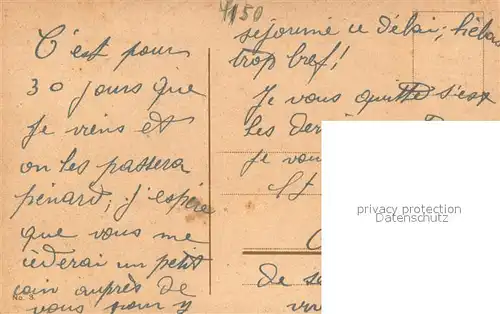 4150
C'est pour
30 jours que
je viens et
on les passera
pénard; j'espère
que vous me
céderai un petit
coin auprès de
vous pour y
No. 8.
séjourné ce délai; hélas
trop bref!
Je vous quitte
les
je
de
privacy protection
Datenschutz